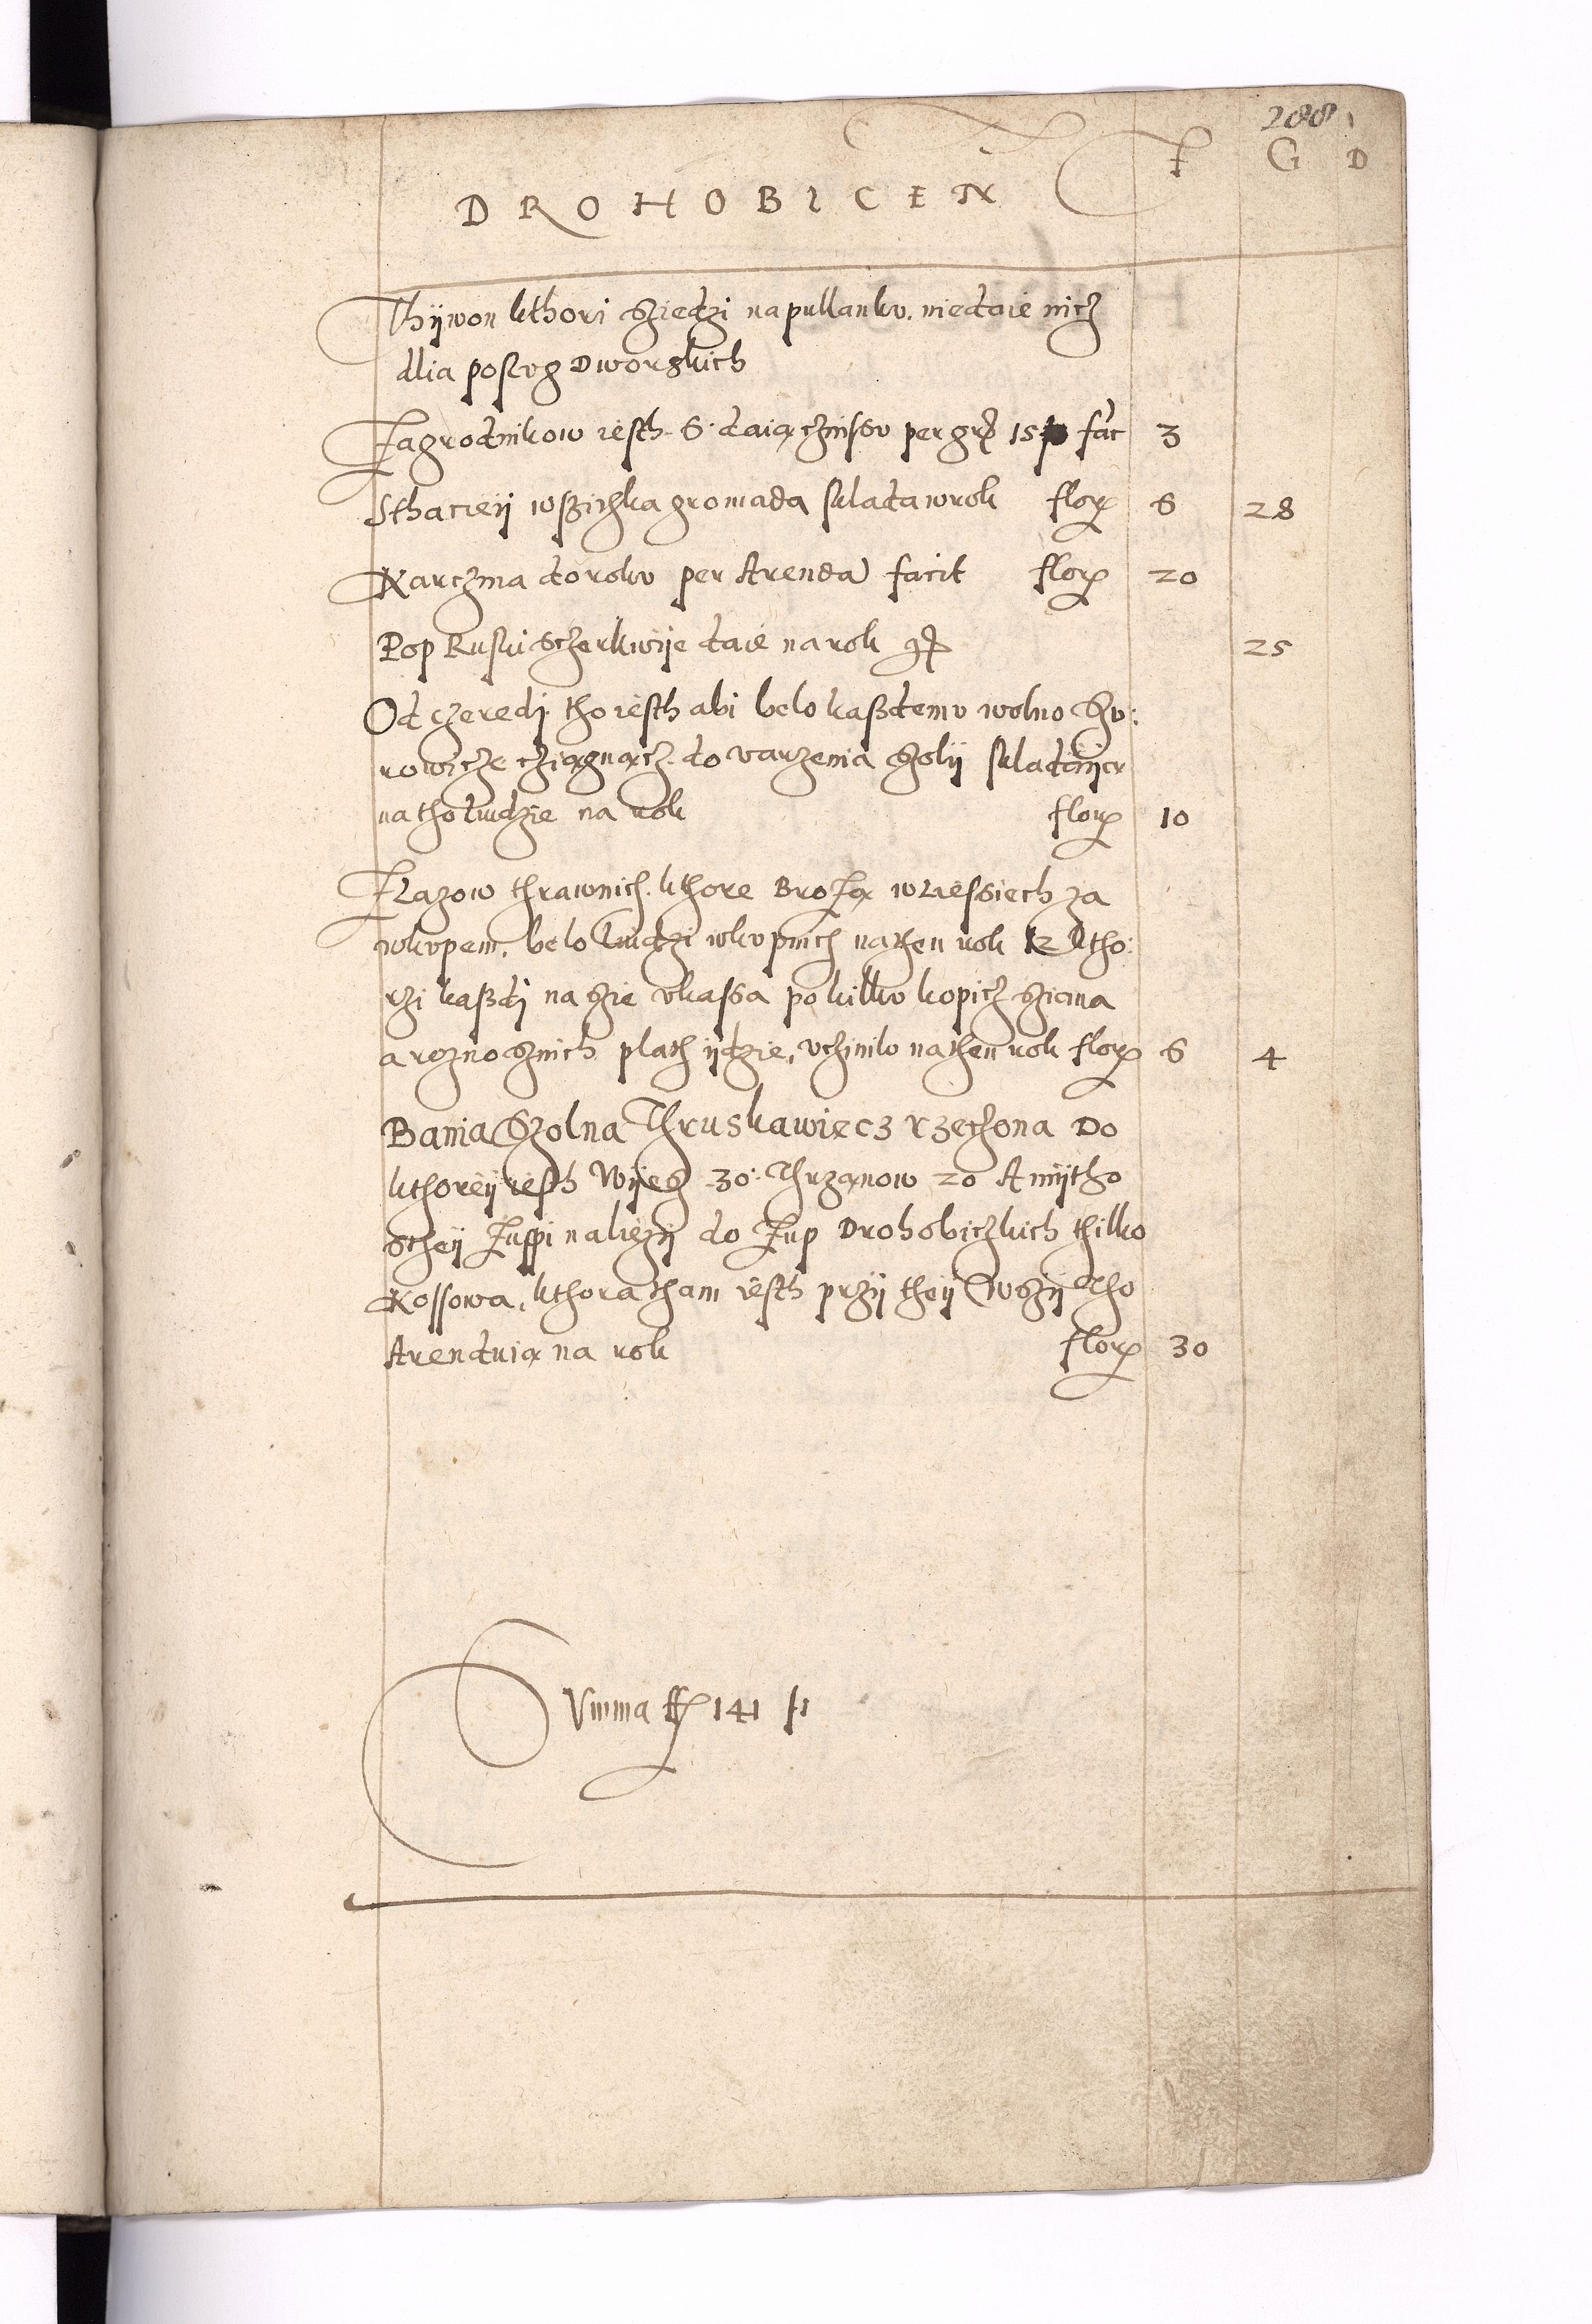 288
F G D
DROHOBICEN
Thijwon kthori sziedzi na pullanku. niedaie nicz
dlia poslug Dworskich
Zagrodnikow iesth 6. daią czinssu per gr 15 fac 3
Sthacieij wszichka gromada sklada w rok flor 6 28
Karczma do roku per Arenda facit flor 20
Pop Ruski sczerkwije daie na rok gr 25
Od czeredj tho iesth abi belo kaszdemu wolno Su:
rowicze cziągnącz do varzenia szolij skladaija
na tho ludzie na rok flor 10
Zlazow thrawnich kthore Brożą w Liessiech za
wkupem. belo ludzi wkupnich na then rok 12 ktho:
rzi kaszdj na szie vkassa po kilku kopicz sziana
a rozno sznich placz ijdzie, vchinilo na then rok flor 6 4
Bania Szolna Thruskawiecz rzechona Do
kthoreij iesth Wijesz 30. Thrzanow 20 A mijtho
stheij Zuppi naliezij do Zup Drohobiczkich thilko
Kossowa, kthora tham iesth przij theij wszij Tho
Arenduią na rok flor 30
Summa ff 141